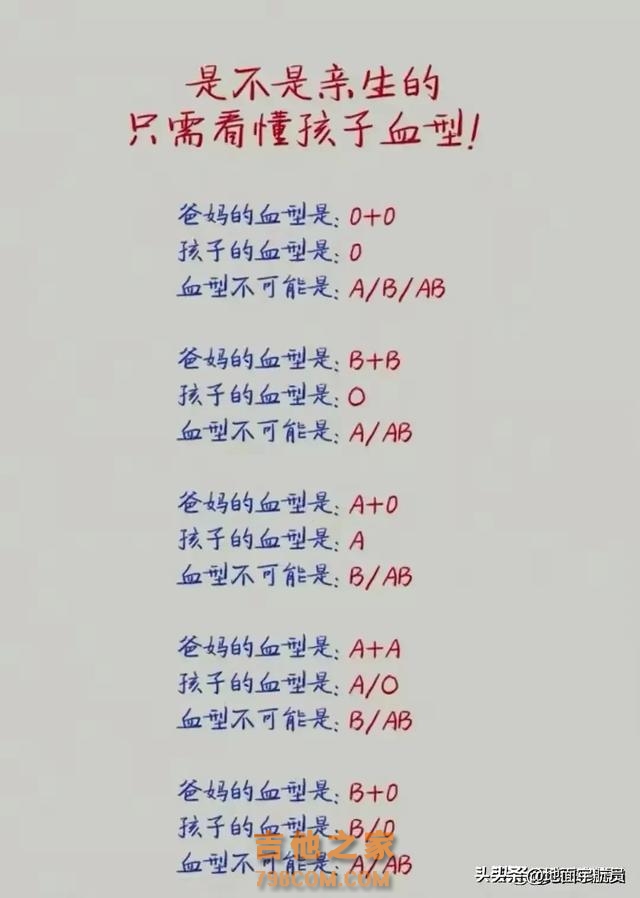 是不是亲生的
只需看懂孩子血型!
爸妈的血型是: O+O
孩子的血型是: O
血型不可能是: A/B/AB
爸妈的血型是: B+B
孩子的血型是: O
血型不可能是: A/AB
爸妈的血型是: A+O
孩子的血型是: A
血型不可能是: B/AB
爸妈的血型是: A+A
孩子的血型是: A/O
血型不可能是: B/AB
爸妈的血型是: B+O
孩子的血型是: B/O
血型不可能是: A/AB
吉他之家
798COM.COM
头条 @地面宇航员